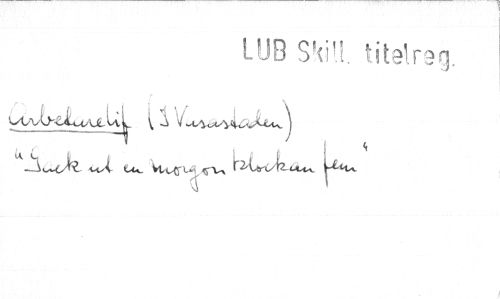 LUB Skill. titelreg.
Arbeturelif (I Vasastaden)
"Gack ut en morgon klockan fem"